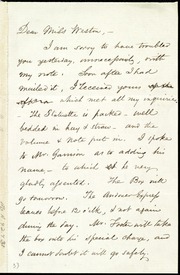 Dear Miss Weston, –
I am sorry to have troubled
you yesterday, unnecessarily, with
my note. Soon after I had
mailed it, I received yours
which met all my inquiries.
The Statuette is packed – well
bedded in hay & straw – and the
volume & note put in. I spoke
to Mr Garrison as to adding his
name, – to which he very
gladly assented. The Box will
go tomorrow. The
leaves before 12 o'clk, & not again
during the day. Mr. will take
the box into his special charge, and
I cannot doubt it will go safely.